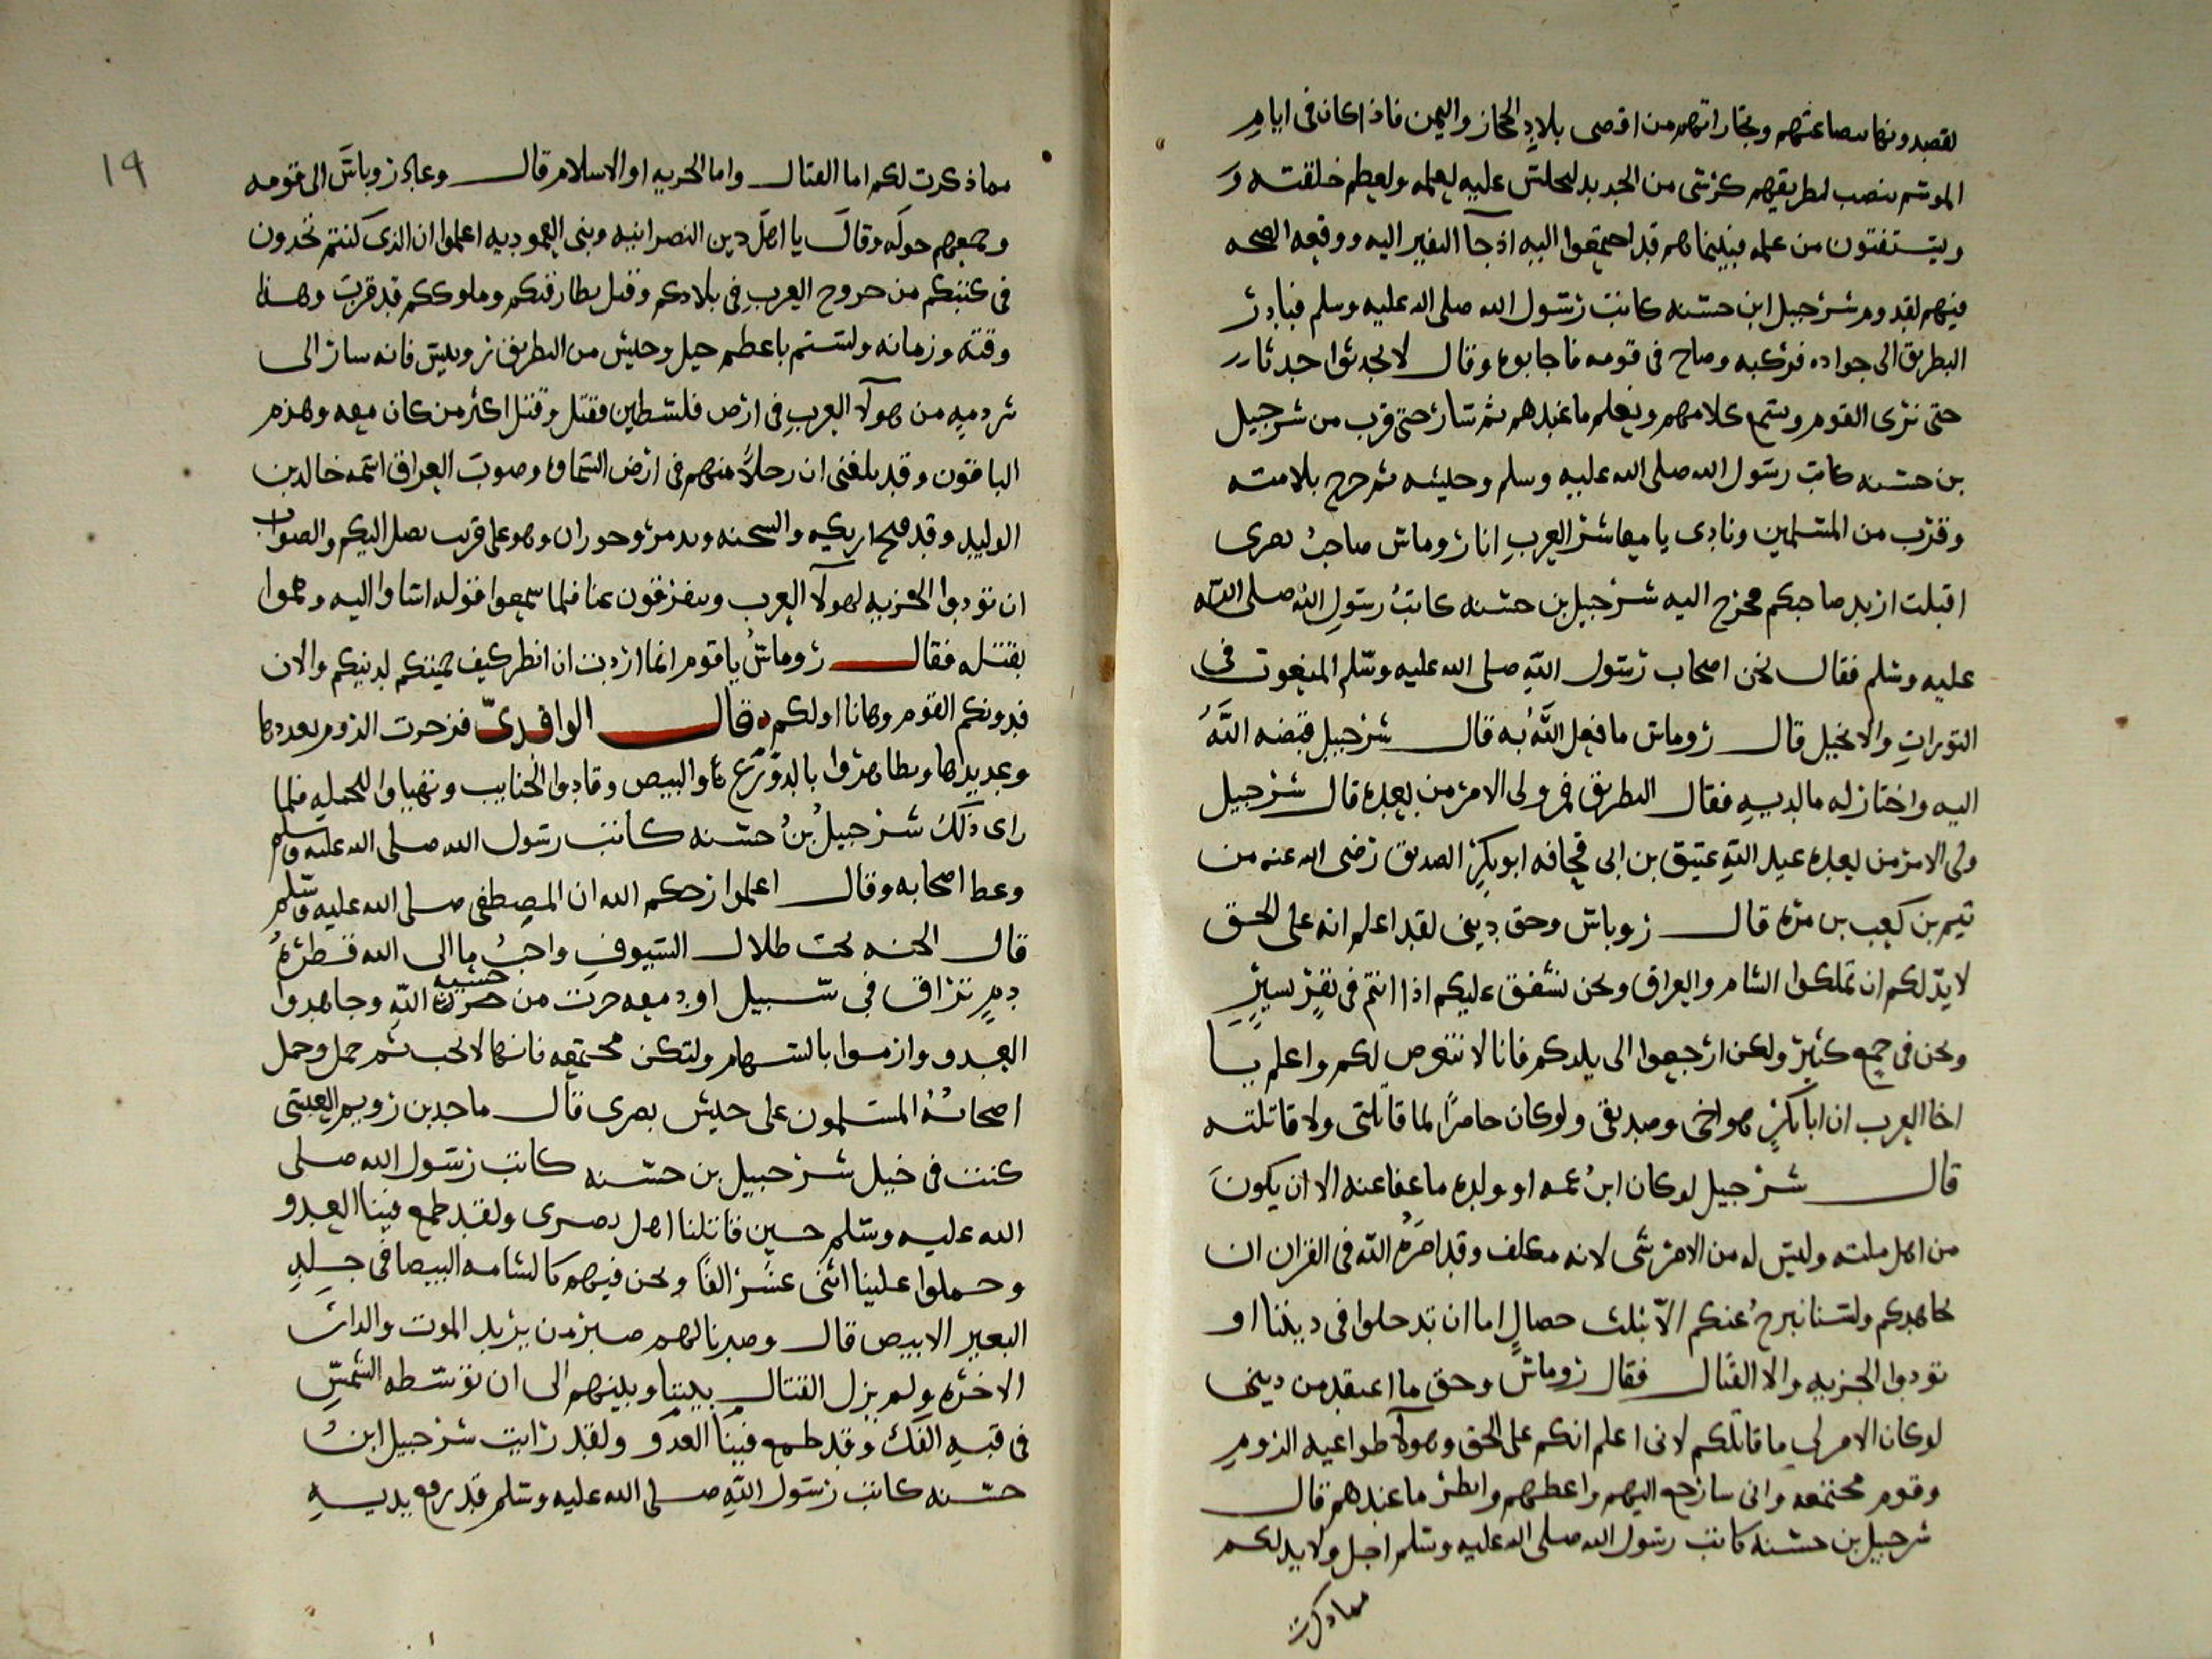 يقصدونها ببضاعتهم وتجاراتهم من اقصى بلاد الحجاز واليمن فاذا كان فى ايام
الموسم ينصب لبطريقهم كرسى من الحديد ليجلس عليه لعلمه ولعظم خلقته و
ويستفتون من علمه فبينما هم قد اجتمعوا اليه اذ جآ النفير اليه ووقعه الصحه
فيهم لقدوم شرحبيل ابن حسنه كاتب رسول الله صلى الله عليه وسلم فبادر
البطريق الى جواده فركبه وصاح فى قومه فاجابوه وقال لا تحدثوا حدثا
حتى نرى القوم ونسمع كلامهم ونعلم ما عندهم ثم سار حتى قرب من شرحبيل
بن حسنه كاتب رسول الله صلى الله عليه وسلم وجيشه ثم خرج بلامته
وقرب من المسلمين ونادى يا معاشر العرب انا روماس صاحب بصرى
اقبلت اريد صاحبكم فخرج اليه شرحبيل بن حسنه كاتب رسول الله صلى الله
عليه وسلم فقال نحن اصحاب رسول الله صلى الله عليه وسلم المنعوت فى
التورات والانجيل قال روماس ما فعل الله به قال شرحبيل قبضه الله
اليه واختار له ما لديه فقال البطريق فمن ولى الامر من بعده قال شرحبيل
ولى الامر من بعده عبد الله عتيق بن ابى قحافه ابو بكر الصديق رضى الله عنه من
تيم بن كعب بن مره قال روباس وحق دينى لقد اعلم انه على الحق
لا بد لكم ان تملكوا الشام والعراق ونحن نشفق عليكم اذا انتم فى نفر يسير
ونحن فى جمع كثير ولكن ارجعوا الى بلدكم فانا لا نتعرض لكم واعلم يا
اخا العرب ان ابا بكر هو اخى وصديقى ولو كان حاضرا لما قاتلنى ولا قاتلته
قال شرحبيل لو كان ابن عمه او ولده ما عفا عنه الا ان يكون
من اهل ملته وليس له من الامر شى لانه مكلف وقد امره الله فى القران ان
نجاهدكم ولسنا نبرح عنكم الا بثلث خصال اما ان تدخلوا فى ديننا او
تودوا الجزيه والا القتال فقال روماس وحق ما اعتقد من دينى
لو كان الامر لى ما قاتلكم لانى اعلم انكم على الحق وهولآ طواغيه الروم
وقوم مجتمعه وانى سارجع اليهم واعظهم وانظر ما عندهم قال
شرحبيل بن حسنه كاتب رسول الله صلى الله عليه وسلم اجل ولا بد لكم
مما ذكرت
١٩
مما ذكرت لكم اما القتال واما الجزيه او الاسلام قال وعاد روباس الى قومه
وجمعهم حوله وقال يا اهل دين النصرانيه وبنى المعموديه اعلموا ان الذى كنتم تجدون
فى كتبكم من خروج العرب فى بلادكم وقتل بطارقتكم وملوككم قد قربت وهذا
وقته وزمانه ولستم باعظم خيل وجيش من البطريق روبيس فانه سار الى
شردميه من هولآ العرب فى ارض فلسطين فقتل وقتل اكثر من كان معه وهزم
الباقون وقد بلغنى ان رجلا منهم فى ارض السماوه وصوب العراق اسمه خالد بن
الوليد وقد فتح اريكه والسحنه وتدمر وحوران وهو على قرب يصل اليكم والصواب
ان تودوا الجزيه لهولآ العرب ويتفرقون عنا فلما سمعوا قوله اسا واليه وهموا
بقتله فقال روماس يا قوم انما اردت ان انظر كيف حميتكم لدينكم والان
فدونكم القوم وها انا اولكم وقال الواقدى فزحرت الروم بعددها
وعديدها وتظاهروا بالدروع والبيض وقادوا الجنايب وتهياوا للحمله فلما
راى ذلك شرحبيل بن حسنه كاتب رسول الله صلى الله عليه وسلم
وعظ اصحابه وقال اعلموا رحمكم الله ان المصطفى صلى الله عليه وسلم
قال الجنه تحت ظلال السيوف واحب ما الى الله قطره
دم تراق فى سبيل او دمعه جرت من خشيه الله وجاهدوا
العدو وارموا بالسهام ولتكن مجتمعه فانها لا تخب ثم حمل وحمل
اصحابه المسلمون على جيش بصرى قال ماجد بن رويم العبسى
كنت فى خيل شرحبيل بن حسنه كاتب رسول الله صلى
الله عليه وسلم حين قاتلنا اهل بصرى ولقد طمع فينا العدو
وحملوا علينا اثنى عشر الفا ونحن فيهم كالشامه البيضا فى جلد
البعير الابيض قال وصبرنا لهم صبر من يريد الموت والدار
الاخره ولم يزل القتال بيننا وبينهم الى ان توسطه الشمس
فى قبه الفلك وقد طمع فينا العدو ولقد رايت شرحبيل ابن
حسنه كاتب رسول الله صلى الله عليه وسلم قد رفع يديه